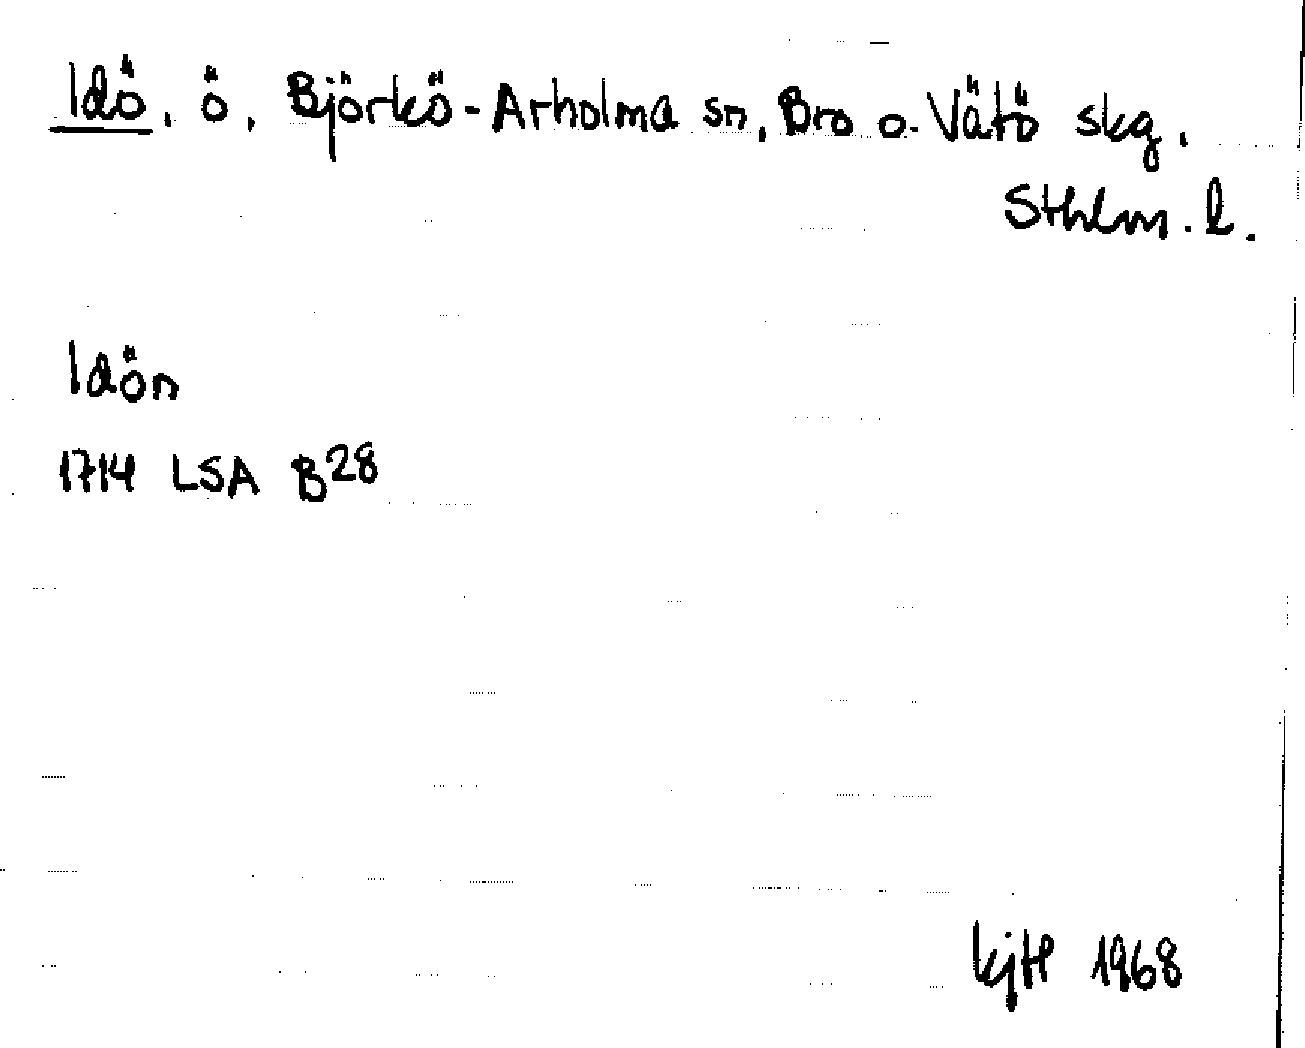 Idö, ö, Björkö-Arholma sn, Bro o. Vätö skg.
Sthlm. l.
Idön
1714 LSA B28
kjtl 1968